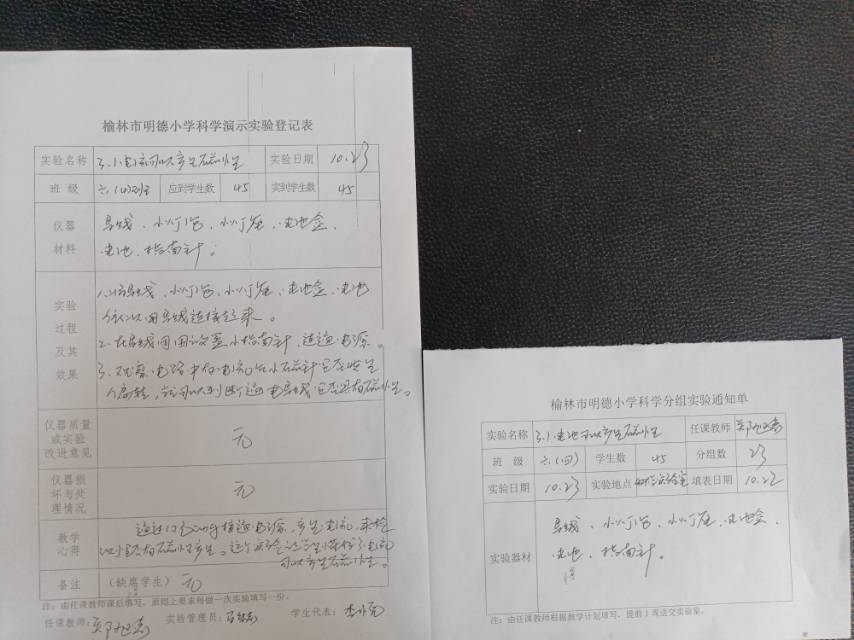 榆林市明德小学科学演示实验登记表
实验名称 3.1.电流可以产生磁性 实验日期 10.23
班 级 六(四)班 应到学生数 45 实到学生数 45
仪器材料 导线、小灯泡、小灯座、电池盒、
电池、指南针。
实验过程及其效果 1.将导线、小灯泡、小灯座、电池盒、电池
依次用导线连接起来。
2.在导线周围放置小指南针,接通电源。
3.观察电路中有电流时小磁针是否发生
偏转,就可以判断通电导线是否具有磁性。
仪器质量或实验改进意见 无
仪器损坏与处理情况 无
教学心得 通过 接通电源,产生电流,来检
磁性产生。这个实验让学生 电流
可以产生磁性。
备注 (缺席学生) 无
注:由任课教师课后填写,原则上要求每做一次实验填写一份。
任课教师: 实验管理员: 学生代表:
榆林市明德小学科学分组实验通知单
实验名称 3.1.电池可以产生磁性 任课教师
班 级 六(四) 学生数 45 分组数 23
实验日期 10.23 实验地点 实验室 填表日期 10.22
实验器材 导线、小灯泡、小灯座、电池盒、
电池、指南针。
注:由任课教师根据教学计划填写,提前1周送交实验室。